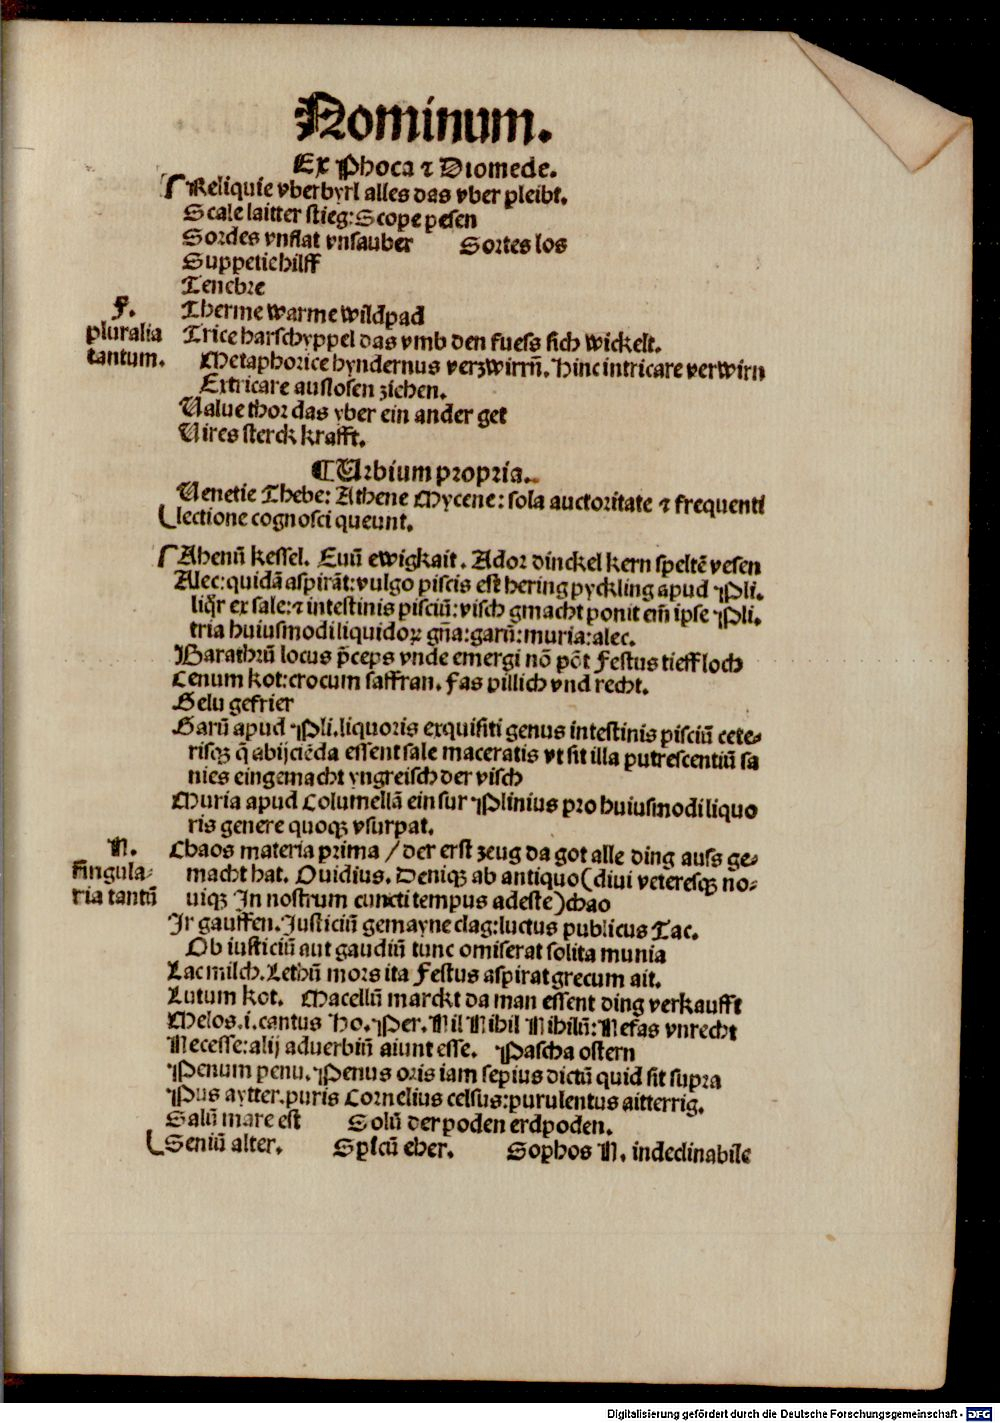 Nominum.
Ex Phoca ⁊ Diomede.
Reliquie vberbyrl alles das vber pleibt.
Scale laitter stieg: Scope pesen
Sordes vnflat vnsauber Sortes los
Suppetie hilff
Tenebre
F.
pluralia
tantum.
Therme warme wildpad
Trice harschyppel das vmb den fuess sich wickelt.
Metaphorice hyndernus verzwirrñ. Hinc intricare verwirn
Extricare auslosen ziehen.
Value thor das vber ein ander get
Vires sterck krafft.
¶ Urbium propria.
Venetie Thebe: Athene Mycene: sola auctoritate ⁊ frequenti
lectione cognosci queunt.
Ahenū kessel. Euū ewigkait. Ador dinckel kern speltē vesen
Alec: quidā aspirāt: vulgo piscis est hering pyckling apud Pli.
liqr ex sale: ⁊ intestinis pisciū: visch gmacht ponit em̄ ipse Pli.
tria huiusmodi liquidoꝝ gn̄a: garū: muria: alec.
Barathrū locus p̄ceps vnde emergi nō pōt Festus tieff loch
Cenum kot: crocum saffran. Fas pillich vnd recht.
Gelu gefrier
Garū apud Pli. liquoris exquisiti genus intestinis pisciū cete-
risqꝫ q̄ abijciēda essent sale maceratis vt sit illa putrescentiū sa
nies eingemacht yngreisch der visch
Muria apud Columellā ein sur Plinius pro huiusmodi liquo
ris genere quoqꝫ vsurpat.
N.
singula-
ria tantū
Chaos materia prima / der erst zeug da got alle ding auss ge-
macht hat. Ouidius. Deniqꝫ ab antiquo (diui veteresqꝫ no-
uiqꝫ In nostrum cuncti tempus adeste) chao
Ir gauffen. Iusticiū gemayne clag: luctus publicus Tac.
Ob iusticiū aut gaudiū tunc omiserat solita munia
Lac milch. Lethū mors ita Festus aspirat grecum ait.
Lutum kot. Macellū marckt da man essent ding verkaufft
Melos .i. cantus Ho. Per. Nil Nihil Nihilū: Nefas vnrecht
Necesse: alij aduerbiū aiunt esse. Pascha ostern
Penum penu. Penus oris iam sepius dictū quid sit supra
Pus aytter. puris Cornelius celsus: purulentus aitterrig.
Salū mare est Solū der poden erdpoden.
Seniū alter. Spicū eher. Sophos N. indeclinabile
Digitalisierung gefördert durch die Deutsche Forschungsgemeinschaft - DFG